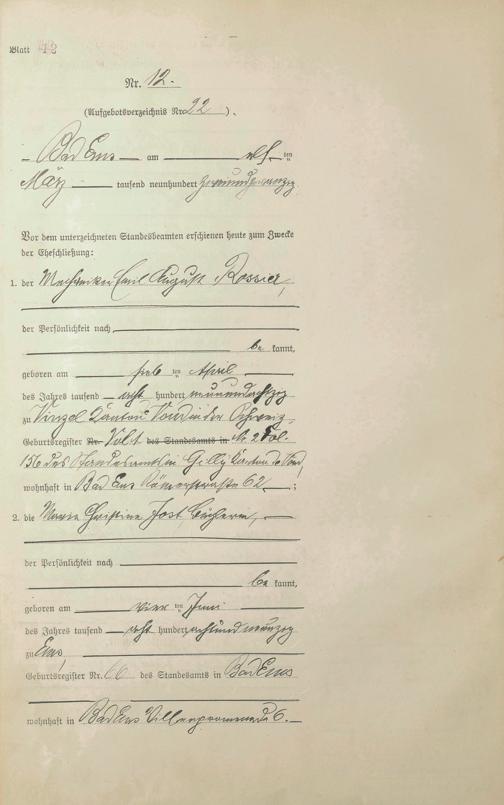 Blatt 12
Nr. 12.
(Aufgebotsverzeichnis Nr. 22).
Bad Ems am elf ten
März tausend neunhundert zweiundzwanzig
Vor dem unterzeichneten Standesbeamten erschienen heute zum Zwecke
der Eheschließung:
1. der Mechaniker Emil August Rossier,
der Persönlichkeit nach
be kannt,
geboren am ten April
des Jahres tausend acht hundert neunundachtzig
zu Vinzel Kanton Vaud in der Schweiz,
Geburtsregister Nr. des Standesamts in Nr. 2 Fol.
156 des Standesamts in Gilly Kanton de Vaud,
wohnhaft in Bad Ems Römerstraße 62. ;
2. die Maria Christine Jost
der Persönlichkeit nach
be kannt,
geboren am vier ten Juni
des Jahres tausend acht hundert achtundneunzig
zu Ems,
Geburtsregister Nr. 66 des Standesamts in Bad Ems
wohnhaft in Bad Ems Villenpromenade 6.